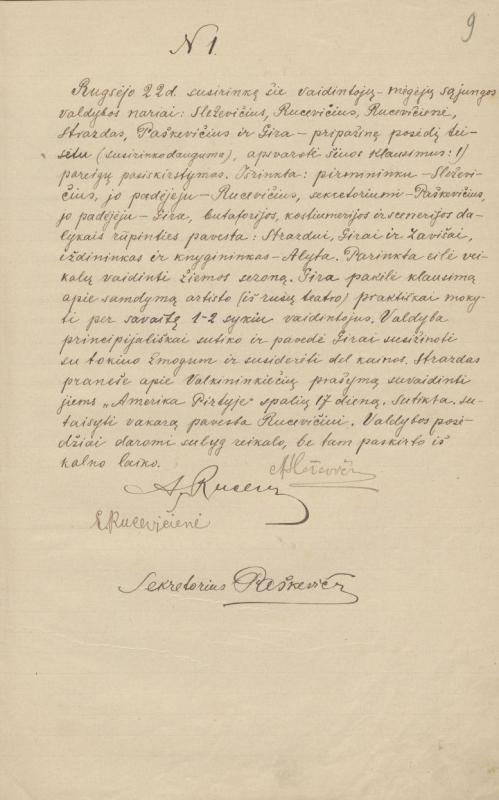 9
N 1.
Rugsėjo 22 d. susirinkę šie vaidintojų-mėgėjų sąjungos
valdybos nariai: Sleževičius, Rucevičius, Rucevičienė,
Strazdas, Paškevičius ir Gira – pripažinę posėdį tei-
sėtu (susirinko dauguma), apsvarstė šiuos klausimus: 1)
pareigų pasiskirstymas. Išrinkta: pirmininku – Sleževi-
čius, jo padėjėju – Rucevičius, sekretoriumi – Paškevičius,
jo padėjėju – Gira, butaforijos, kostiumerijos ir scenerijos da-
lykais rūpinties pavesta: Strazdui, Girai ir Zavišai,
iždininkas ir knygininkas – Alyta. Parinkta eilė vei-
kalų vaidinti žiemos sezoną. Gira padėlė klausimą
apie samdymą artisto (iš rusų teatro) praktiškai moky-
ti per savaitę 1-2 sykiu vaidintojus. Valdyba
principijališkai sutiko ir pavedė Girai susižinoti
su tokiuo žmogum ir susiderėti del kainos. Strazdas
pranešė apie Valkininkiečių prašymą suvaidinti
jiems „Amerika Pirtyje“ spalių 17 dieną. Sutikta. Su-
taisyti vakarą pavesta Rucevičiui. Valdybos posė-
džiai daromi sulyg reikalo, be tam paskirto iš
kalno laiko.
A. Rucev
E. Rucevičienė
Sekretorius Paškevič